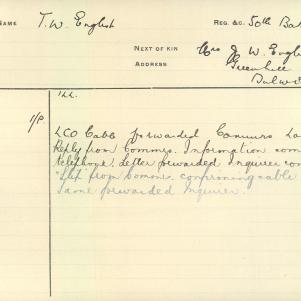 NAME T. W. English REG. &C. 50th Bat
NEXT OF KIN Mrs J W. Engl
ADDRESS Greenhill
Bulw
1/P
LCO Cabb forwarded
Reply from Commrs. Information com
telephone. Letter forwarded Inquirer con
from Commrs. confirming cable
Same forwarded Inquirer.